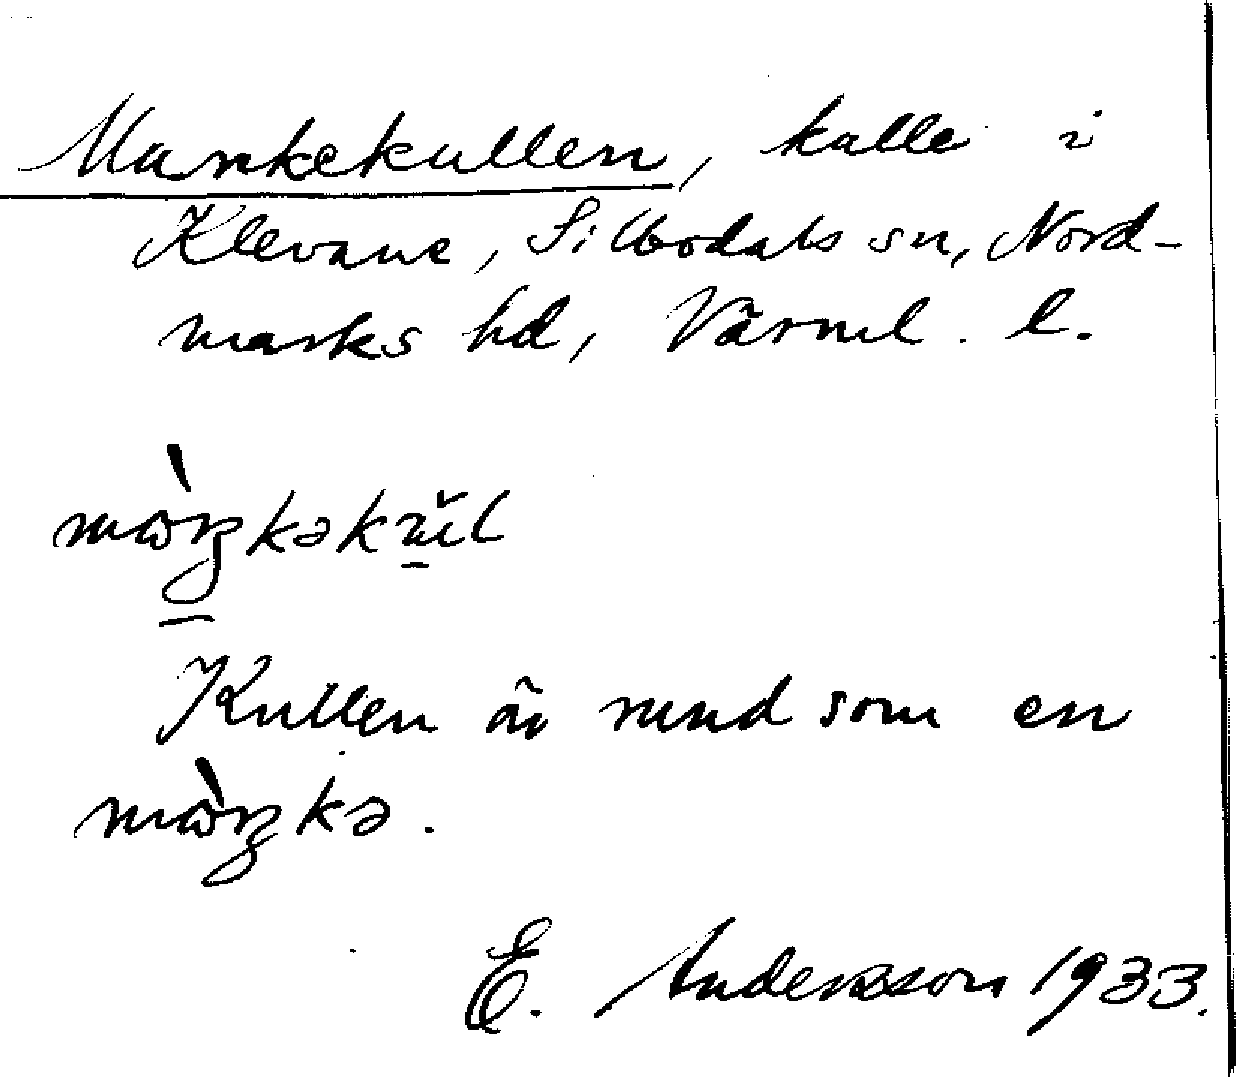 Munkekullen, kulle i
Klevane, Silbodals sn, Nord-
marks hd, Värml. l.
Kullen är rund som en
E. Andersson 1933.